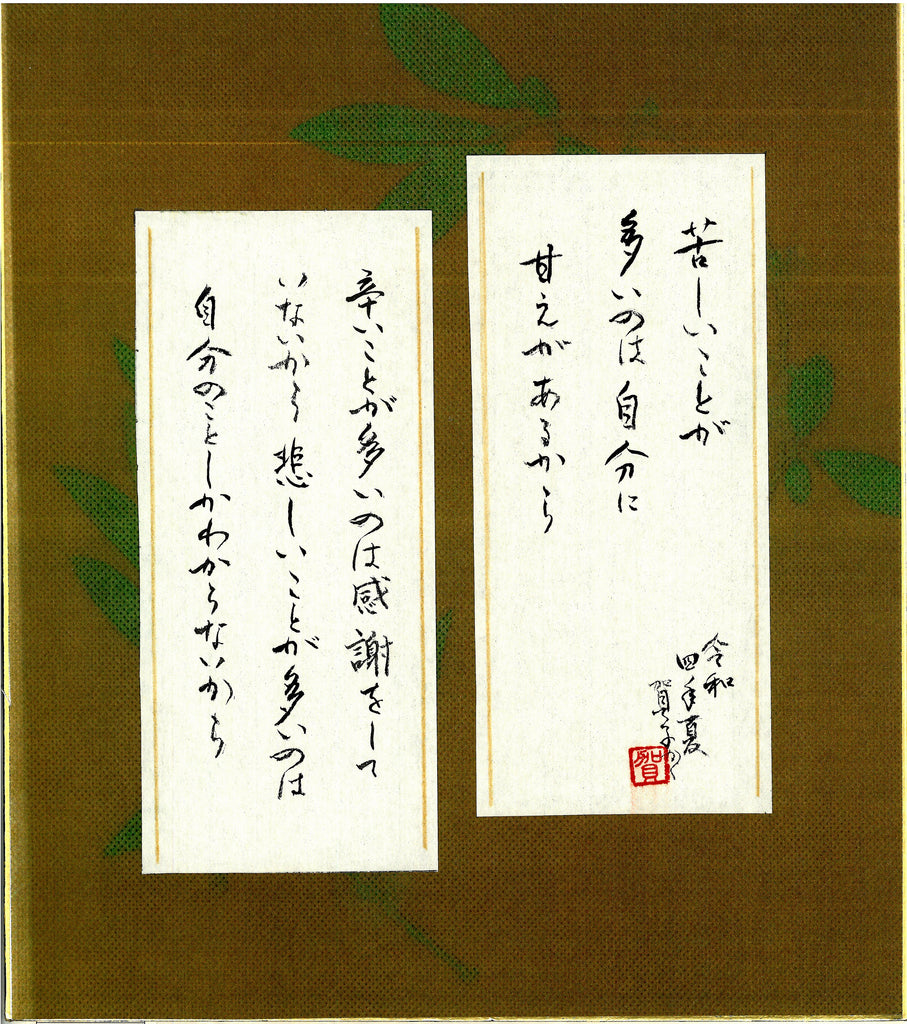 苦しいことが
多いのは自分に
甘えがあるから
令和
四年夏
賀子かく
賀
辛いことが多いのは感謝をして
いないから 悲しいことが多いのは
自分のことしかわからないから